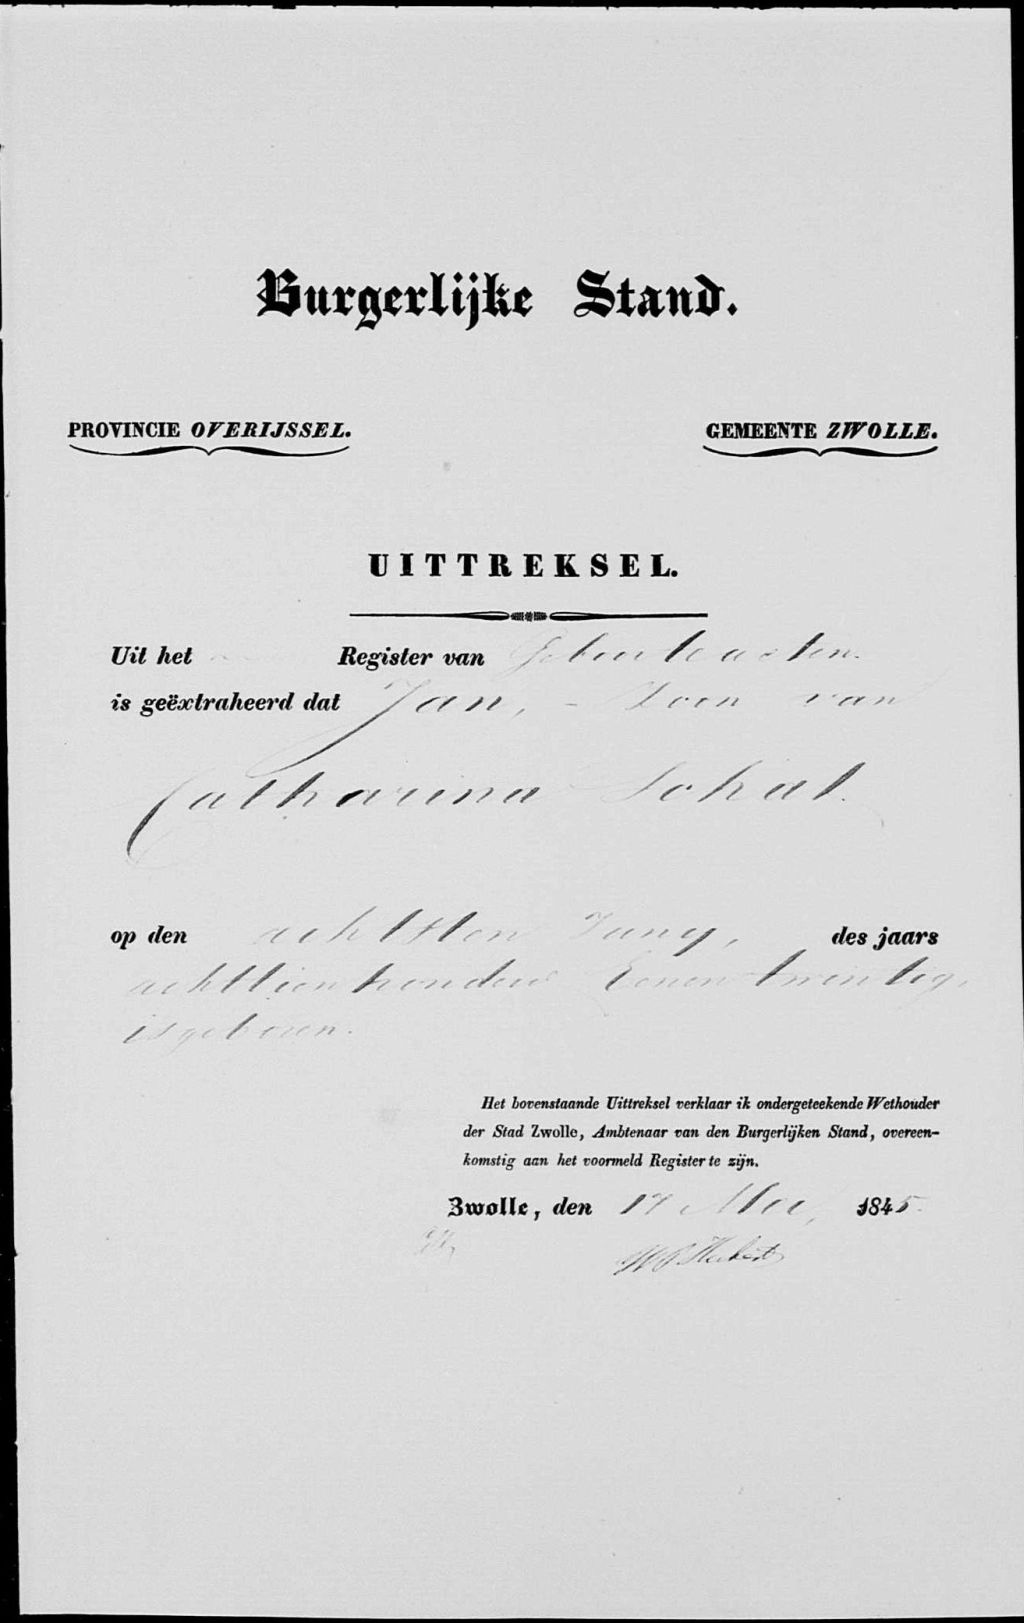 Burgerlijke Stand.
PROVINCIE OVERIJSSEL.
GEMEENTE ZWOLLE.
UITTREKSEL.
Uit het Register van Geboorteacten.
is geëxtraheerd dat Jan, - Zoon van
Catharina Schat.
op den achtsten Juny, des jaars
achttienhonderd Eenentwintig,
is geboren.
Het bovenstaande Uittreksel verklaar ik ondergeteekende Wethouder
der Stad Zwolle, Ambtenaar van den Burgerlijken Stand, overeen-
komstig aan het voormeld Register te zijn.
Zwolle, den 17 Mei, 1845.